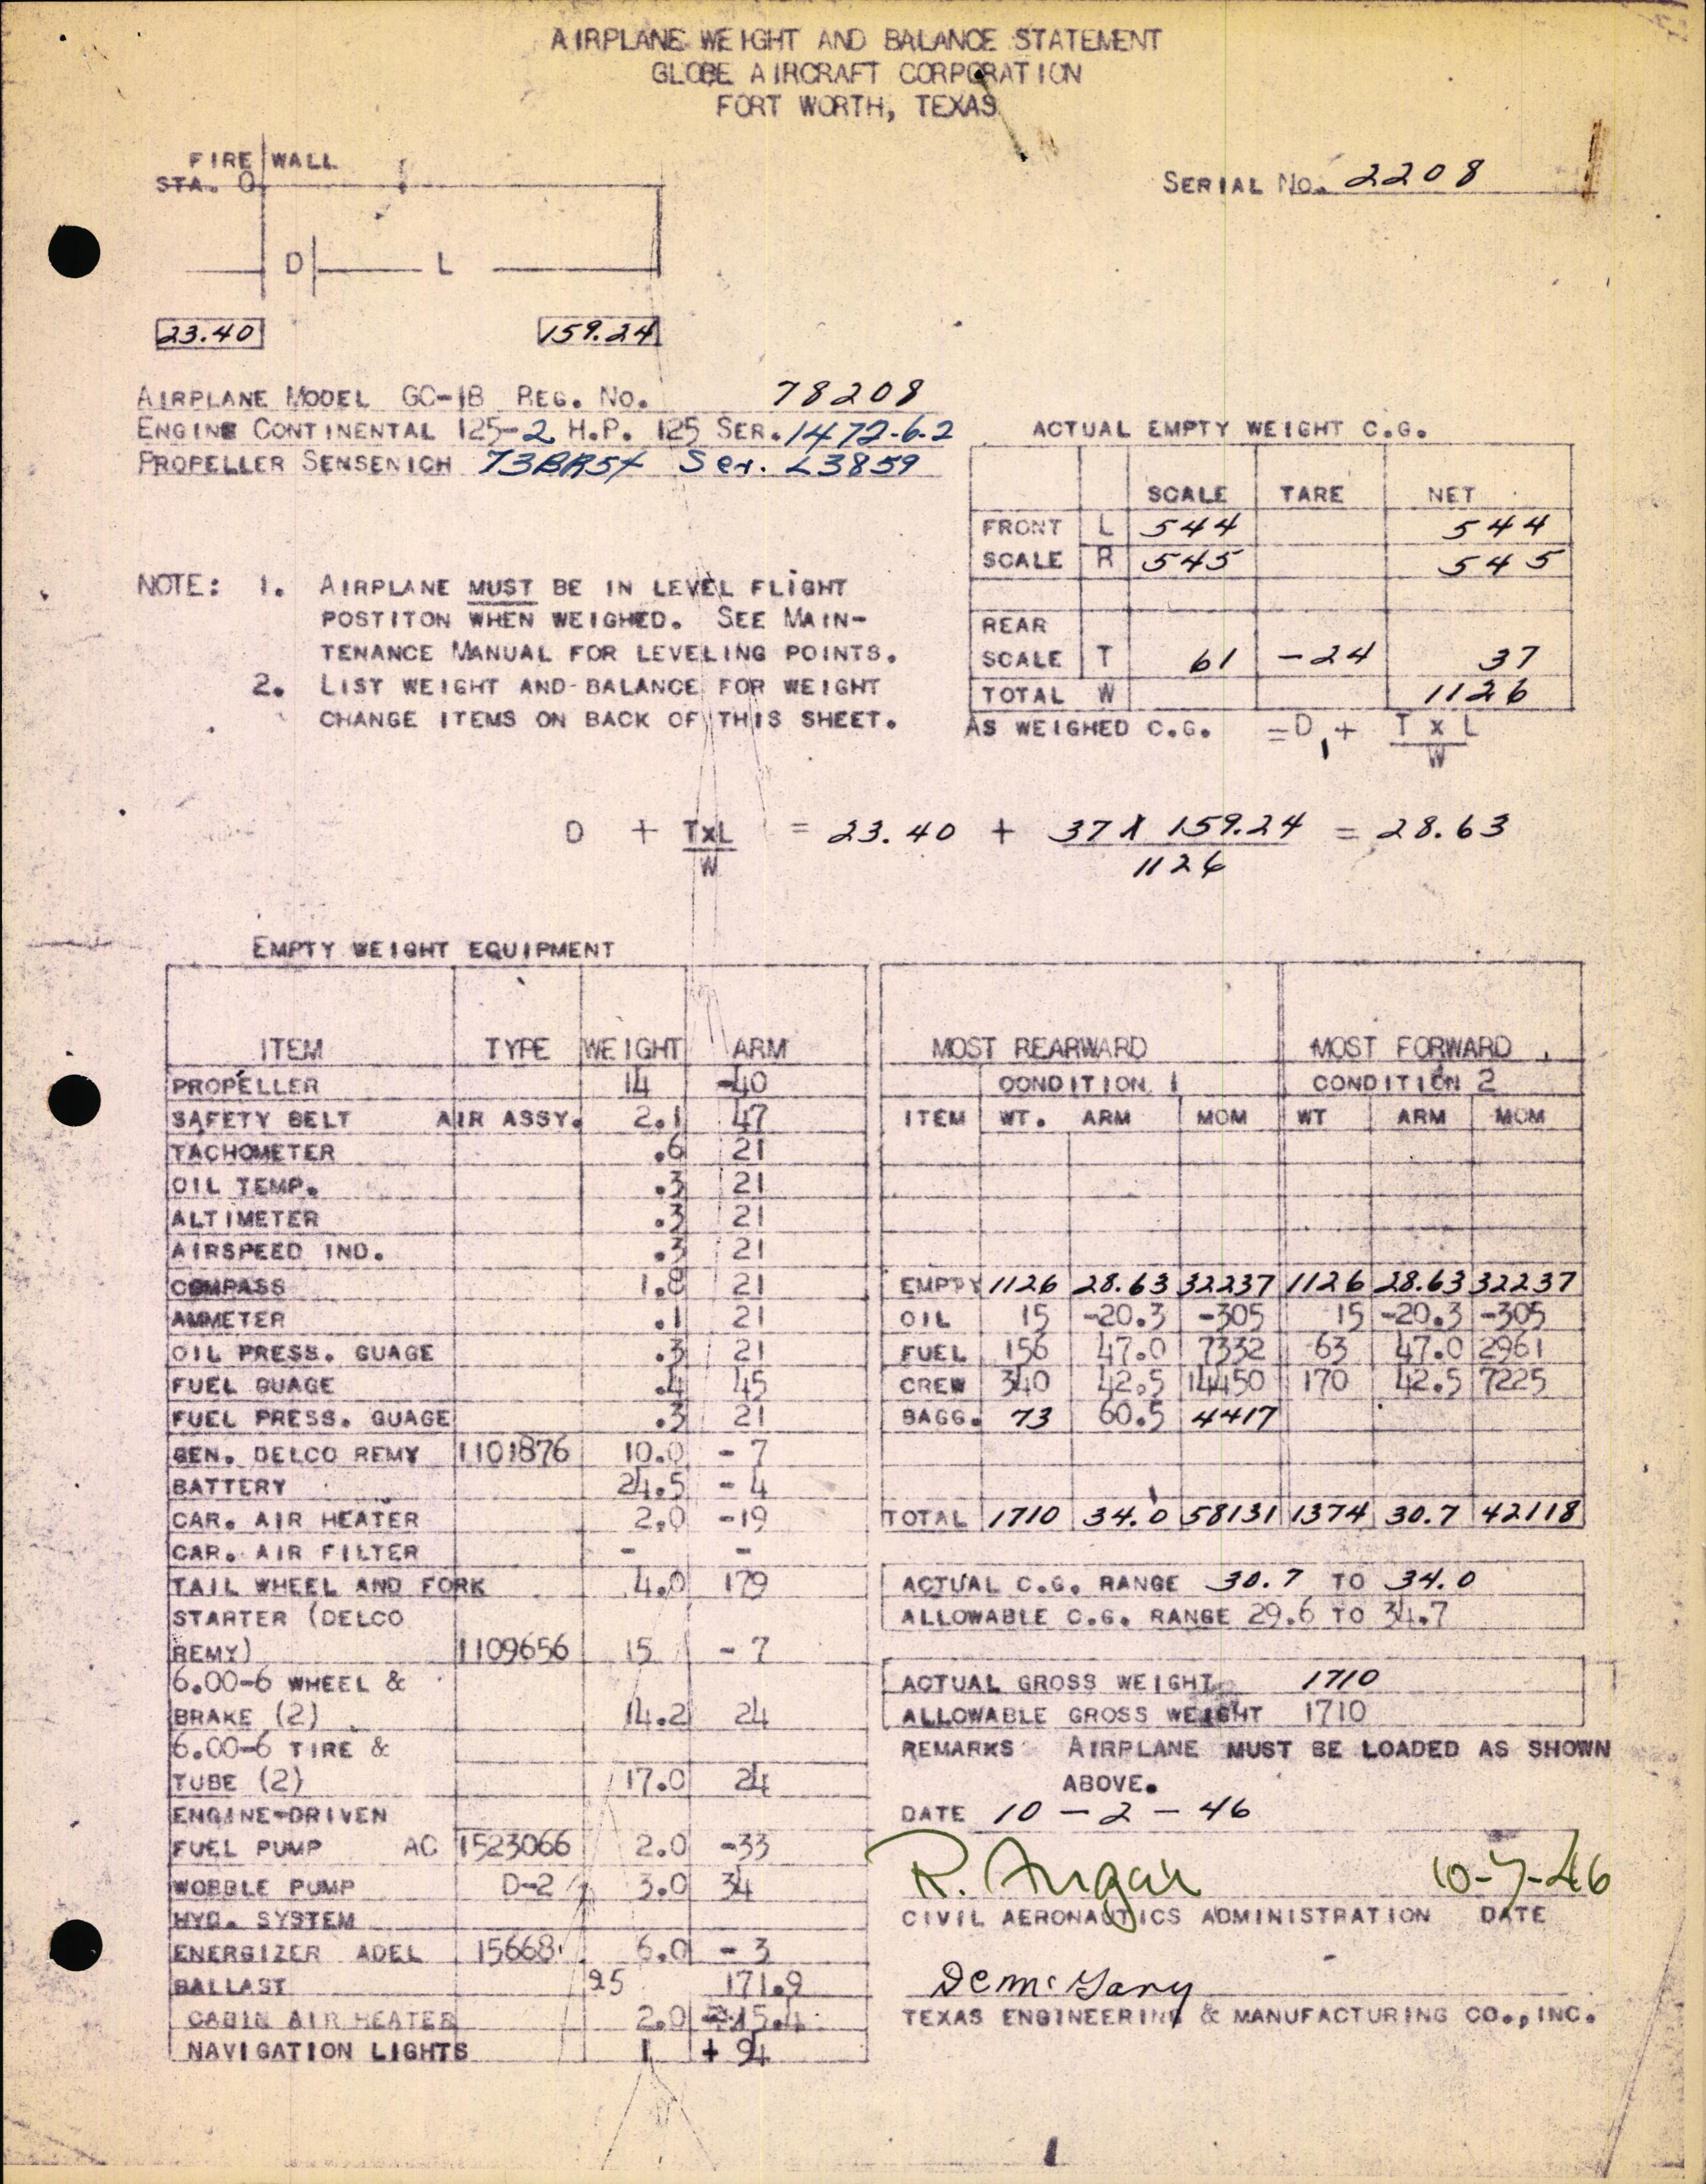 AIRPLANE WEIGHT AND BALANCE STATEMENT
GLOBE AIRCRAFT CORPORATION
FORT WORTH, TEXAS
FIRE WALL
STA. 0
SERIAL No. 2208
D L
23.40 159.24
AIRPLANE MODEL GC-1B REG. No. 78208
ENGINE CONTINENTAL 125-2 H.P. 125 SER. 1472-6-2
PROPELLER SENSENICH 73BR54 Ser. L3859
ACTUAL EMPTY WEIGHT C.G.
SCALE TARE NET
FRONT L 544 544
SCALE R 545 545
REAR
SCALE T 61 -24 37
TOTAL W 1126
AS WEIGHED C.G. =D + T X L
W
NOTE: 1. AIRPLANE MUST BE IN LEVEL FLIGHT
POSTITON WHEN WEIGHED. SEE MAIN-
TENANCE MANUAL FOR LEVELING POINTS.
2. LIST WEIGHT AND BALANCE FOR WEIGHT
CHANGE ITEMS ON BACK OF THIS SHEET.
D + TxL = 23.40 + 37 X 159.24 = 28.63
W 1126
EMPTY WEIGHT EQUIPMENT
ITEM TYPE WEIGHT ARM
PROPELLER 14 -40
SAFETY BELT AIR ASSY. 2.1 47
TACHOMETER .6 21
OIL TEMP. .3 21
ALTIMETER .3 21
AIRSPEED IND. .3 21
COMPASS 1.8 21
AMMETER .1 21
OIL PRESS. GUAGE .3 21
FUEL GUAGE .4 45
FUEL PRESS. GUAGE .3 21
GEN. DELCO REMY 1101876 10.0 - 7
BATTERY 24.5 - 4
CAR. AIR HEATER 2.0 -19
CAR. AIR FILTER - -
TAIL WHEEL AND FORK 4.0 179
STARTER (DELCO
REMY) 1109656 15 - 7
6.00-6 WHEEL &
BRAKE (2) 14.2 24
6.00-6 TIRE &
TUBE (2) 17.0 24
ENGINE-DRIVEN
FUEL PUMP AC 1523066 2.0 -33
WOBBLE PUMP D-2 3.0 34
HYD. SYSTEM
ENERGIZER ADEL 15668 6.0 - 3
BALLAST 25 171.9
CABIN AIR HEATER 2.0 -15.4
NAVIGATION LIGHTS 1 + 94
MOST REARWARD MOST FORWARD
CONDITION 1 CONDITION 2
ITEM WT. ARM MOM WT ARM MOM
EMPTY 1126 28.63 32237 1126 28.63 32237
OIL 15 -20.3 -305 15 -20.3 -305
FUEL 156 47.0 7332 63 47.0 2961
CREW 340 42.5 14450 170 42.5 7225
BAGG. 73 60.5 4417
TOTAL 1710 34.0 58131 1374 30.7 42118
ACTUAL C.G. RANGE 30.7 TO 34.0
ALLOWABLE C.G. RANGE 29.6 TO 34.7
ACTUAL GROSS WEIGHT 1710
ALLOWABLE GROSS WEIGHT 1710
REMARKS AIRPLANE MUST BE LOADED AS SHOWN
ABOVE.
DATE 10-2-46
R. 10-7-46
CIVIL AERONAUTICS ADMINISTRATION DATE
TEXAS ENGINEERING & MANUFACTURING CO., INC.